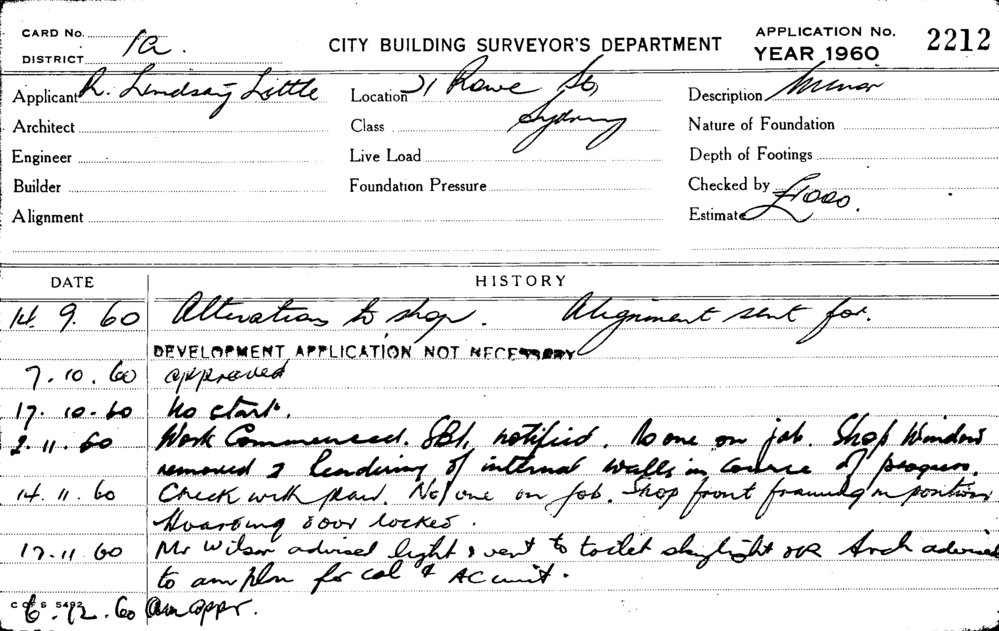 CARD No.
1a.
DISTRICT
CITY BUILDING SURVEYOR'S DEPARTMENT
APPLICATION No.
YEAR 1960
2212
Applicant R. Lindsay Little
Location 21 Rowe St,
Sydney
Description Minor
Architect
Class
Nature of Foundation
Engineer
Live Load
Depth of Footings
Builder
Foundation Pressure
Checked by
Alignment
Estimate £1000.
DATE
HISTORY
14. 9. 60 Alterations to shop. Alignment sent for.
DEVELOPMENT APPLICATION NOT NECESSARY
7. 10. 60 approved
17. 10. 60 No start.
2. 11. 60 Work Commenced. notified. No one on job. Shop Window
removed & rendering of internal walls in course of progress.
14. 11. 60 Check with plan. No one on job. Shop front framing in position
Hoarding door locked.
17. 11 60 Mr Wilson advised light & vent to toilet skylight OK Arch advised
to am pln for col & AC unit.
C OF S 5492
6. 12. 60 Am appr.